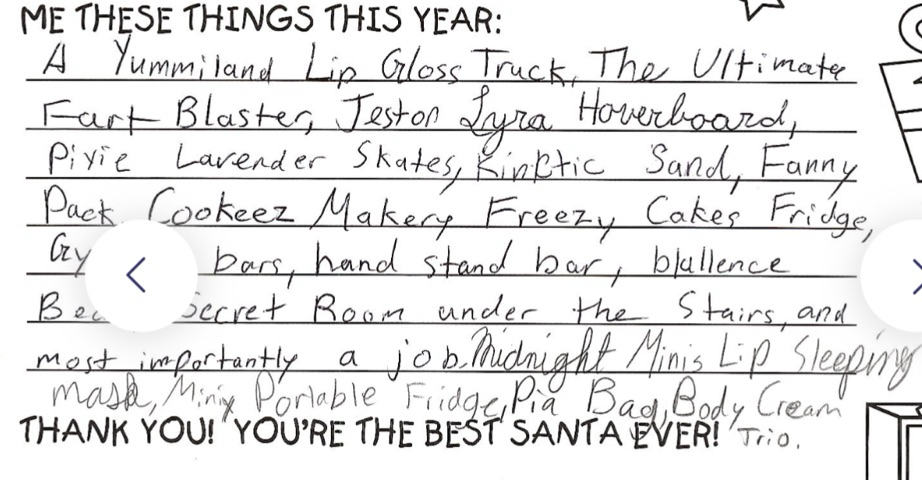 ME THESE THINGS THIS YEAR:
A Yummiland Lip Gloss Truck, The Ultimate
Fart Blaster, Jeston Lyra Hoverboard,
Pixie Lavender Skates, Kinetic Sand, Fanny
Pack Cookeez Makery Freezy Cakes Fridge,
bars, hand stand bar, bjullence
Secret Room under the Stairs, and
most importantly a job. Midnight Minis Lip Sleeping
mask, Miniy Portable Fridge, Pia Bag, Body Cream
THANK YOU! YOU'RE THE BEST SANTA EVER! Trio.